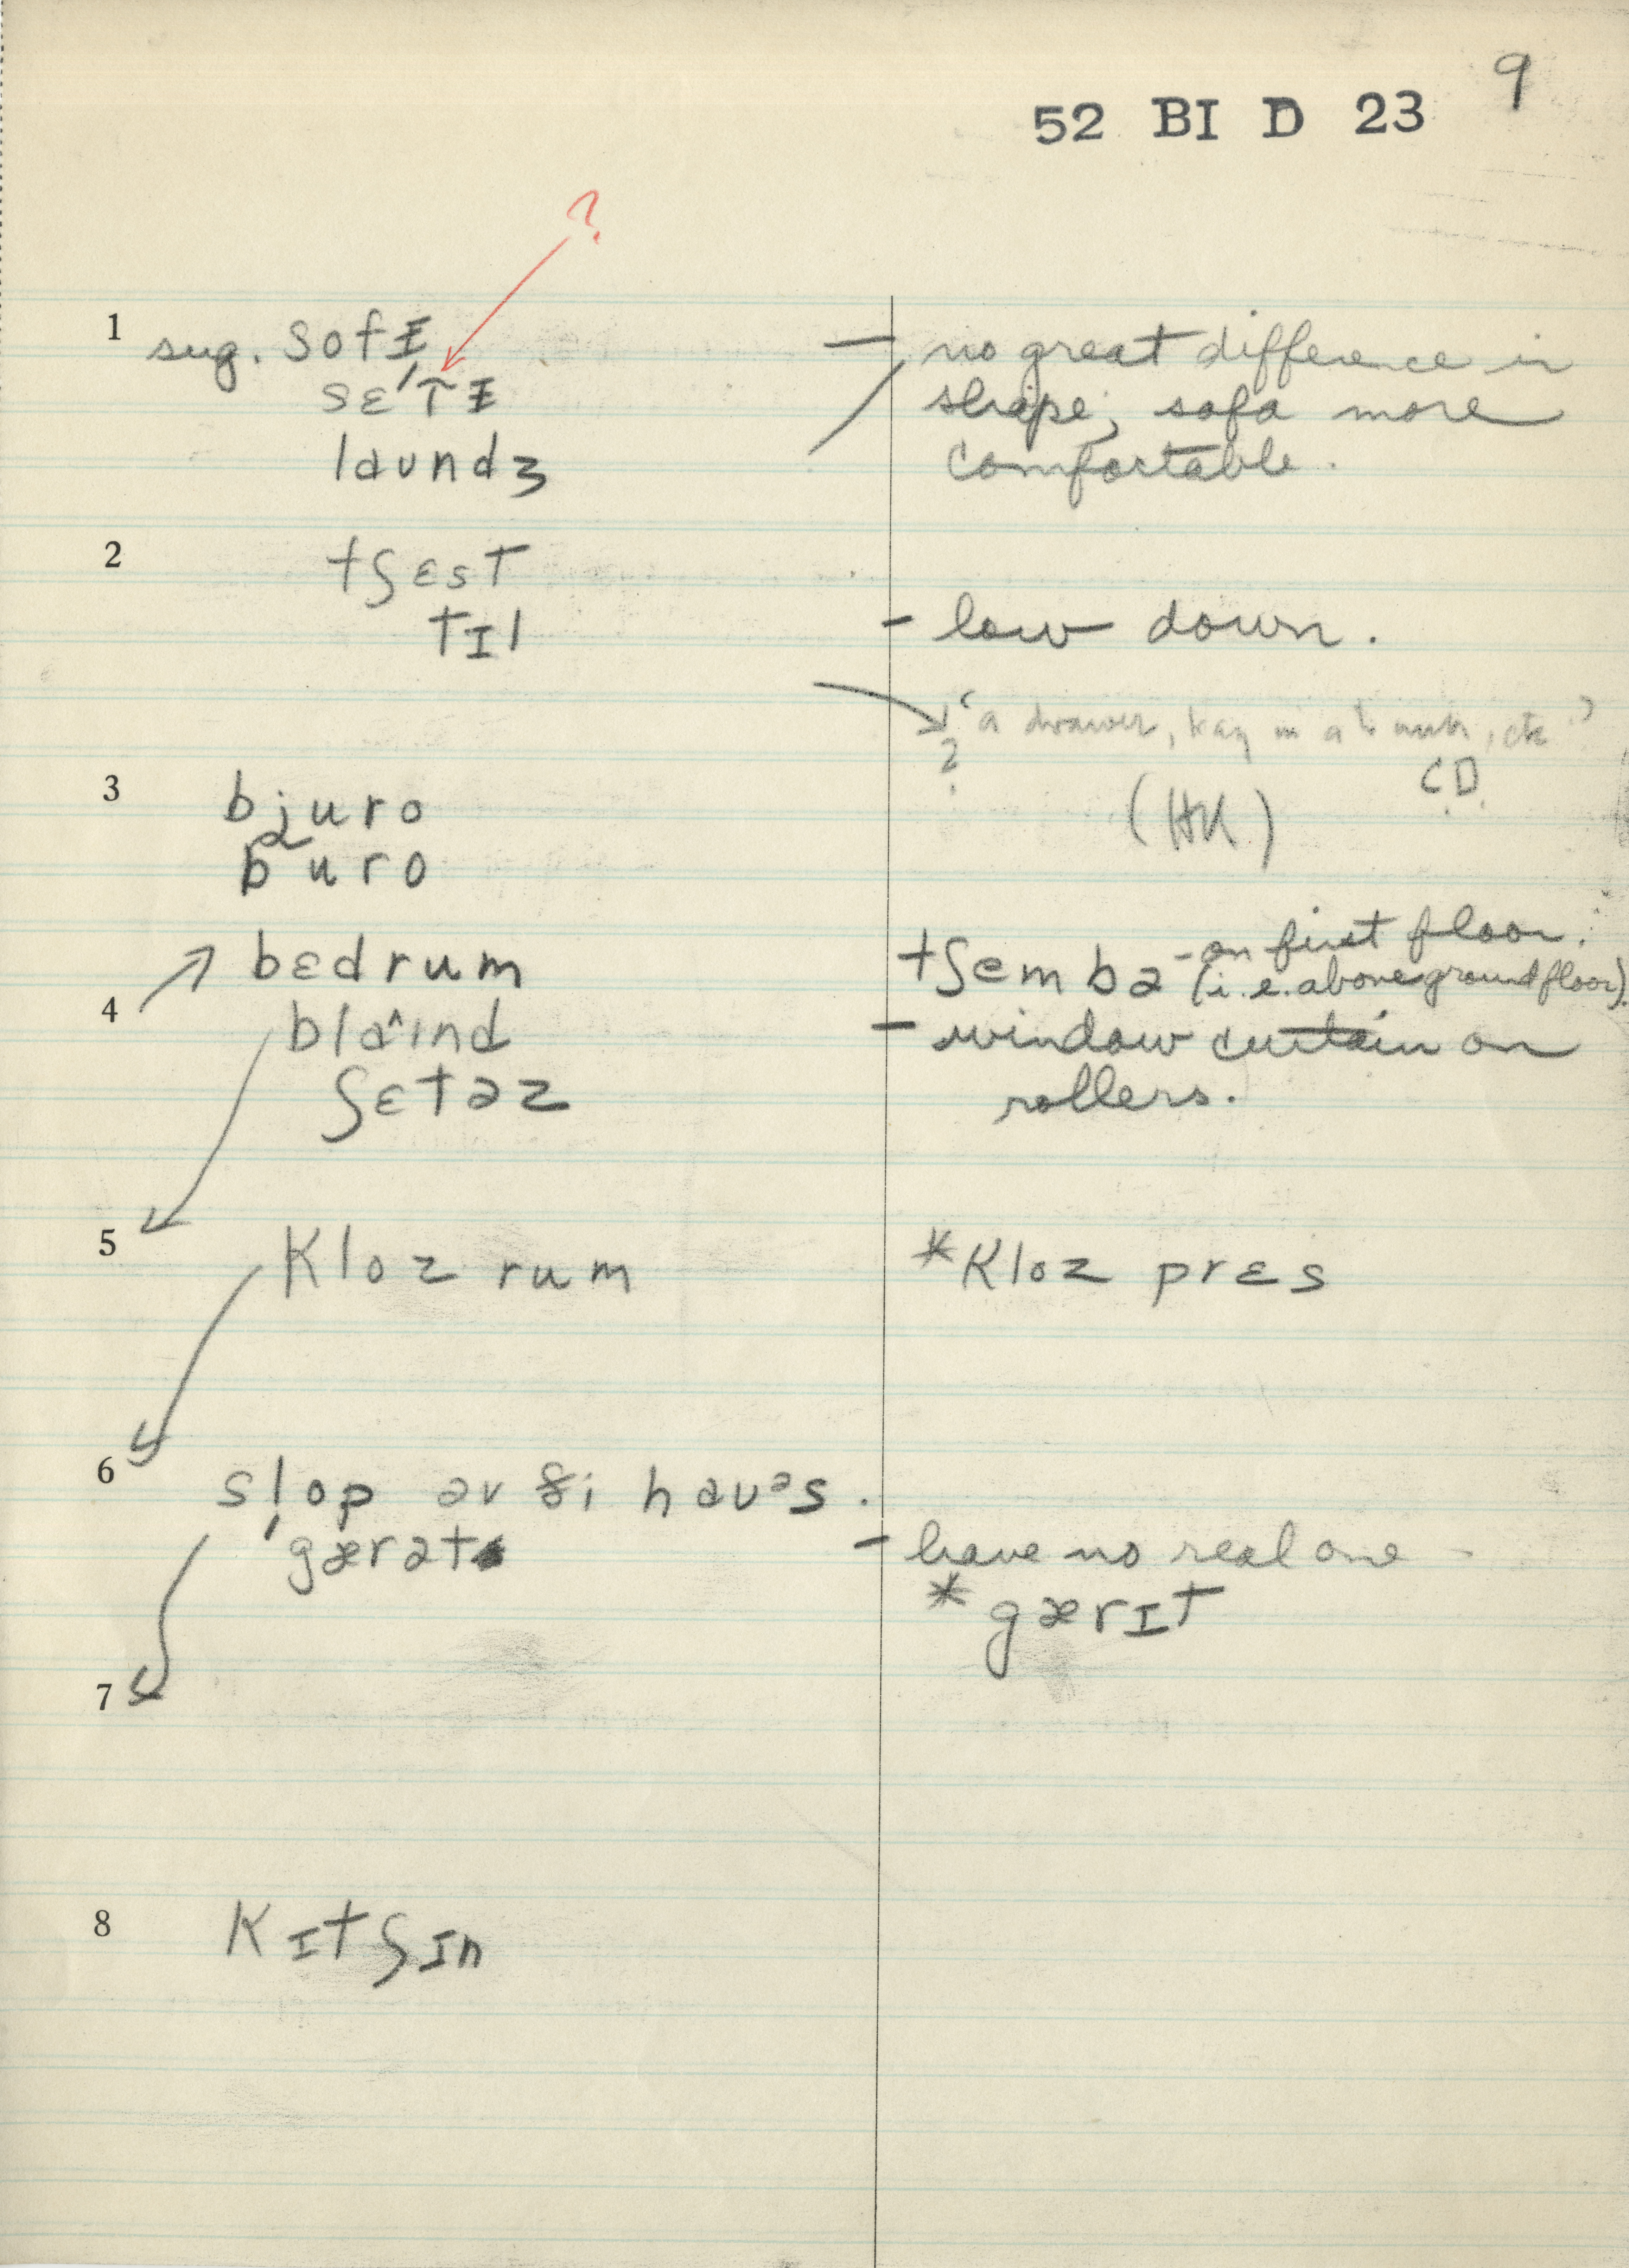 9
52 BI D 23
?
1 sug. sofɪ — no great difference in
sɛ'tɪ shape, sofa more
laundʒ comfortable.
2 tʃɛst
tɪl - low down.
'a drawer, in a etc'
? C.D.
3 bjuro (HK)
bʲuro
bɛdrum tʃembə - on first floor.
4 (i.e. above ground floor).
blaˆɪnd - window curtain on
ʃɛtəz rollers.
5 kloz rum *kloz prɛs
6 slop əv ði hauᵊs.
'gærət - have no real one -
* gærɪt
7
8 kɪtʃɪn